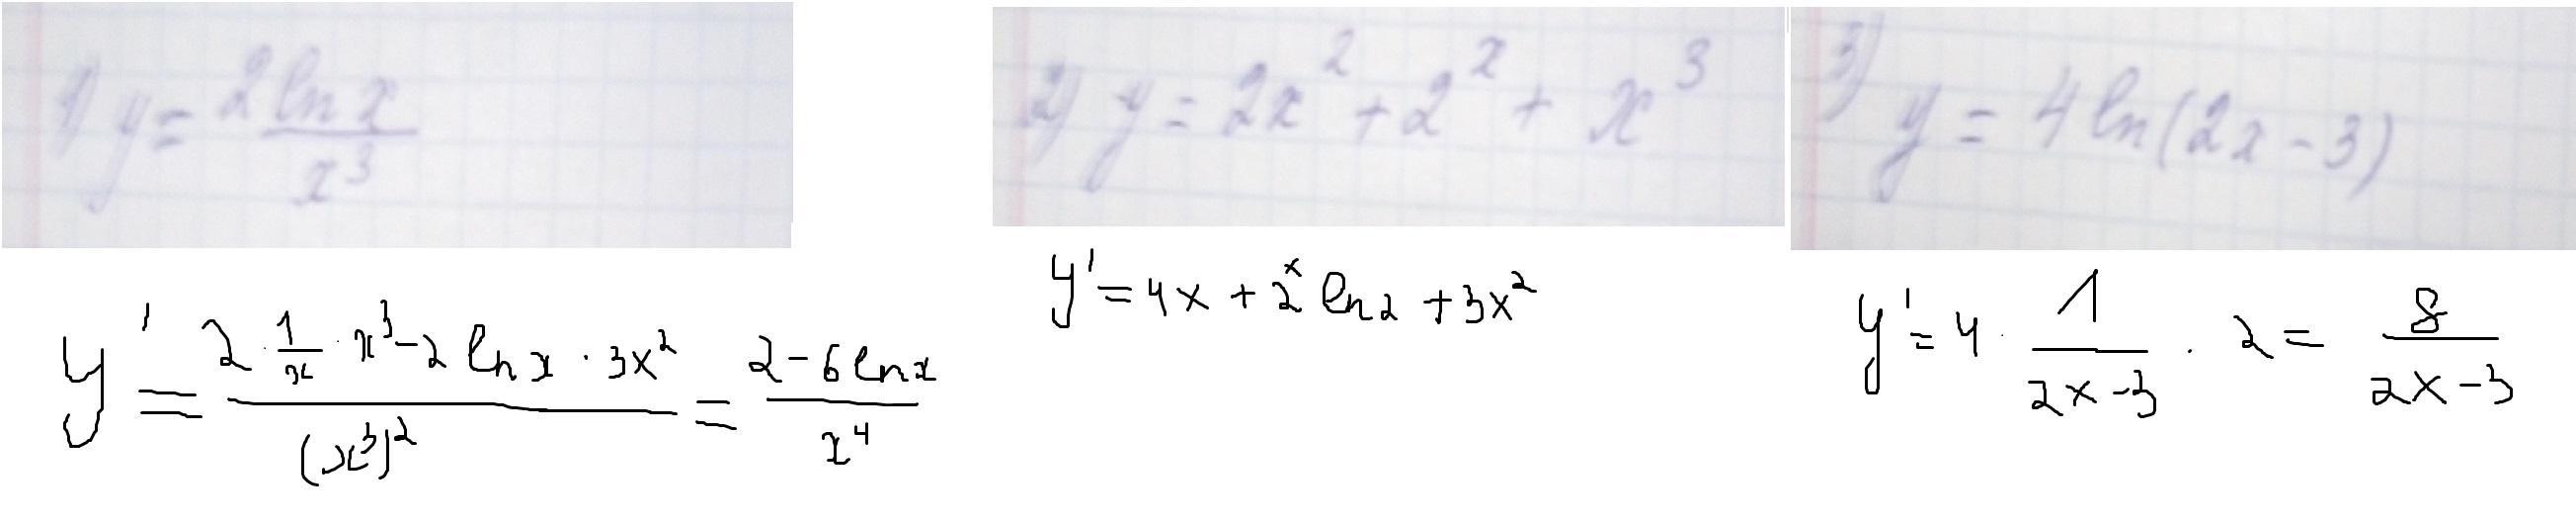 1) y = 2 ln x / x³
y' = (2 · 1/x · x³ - 2 ln x · 3x²) / (x³)² = (2 - 6 ln x) / x⁴
2) y = 2x² + 2ˣ + x³
y' = 4x + 2ˣ ln 2 + 3x²
3) y = 4 ln(2x - 3)
y' = 4 · 1 / (2x - 3) · 2 = 8 / (2x - 3)